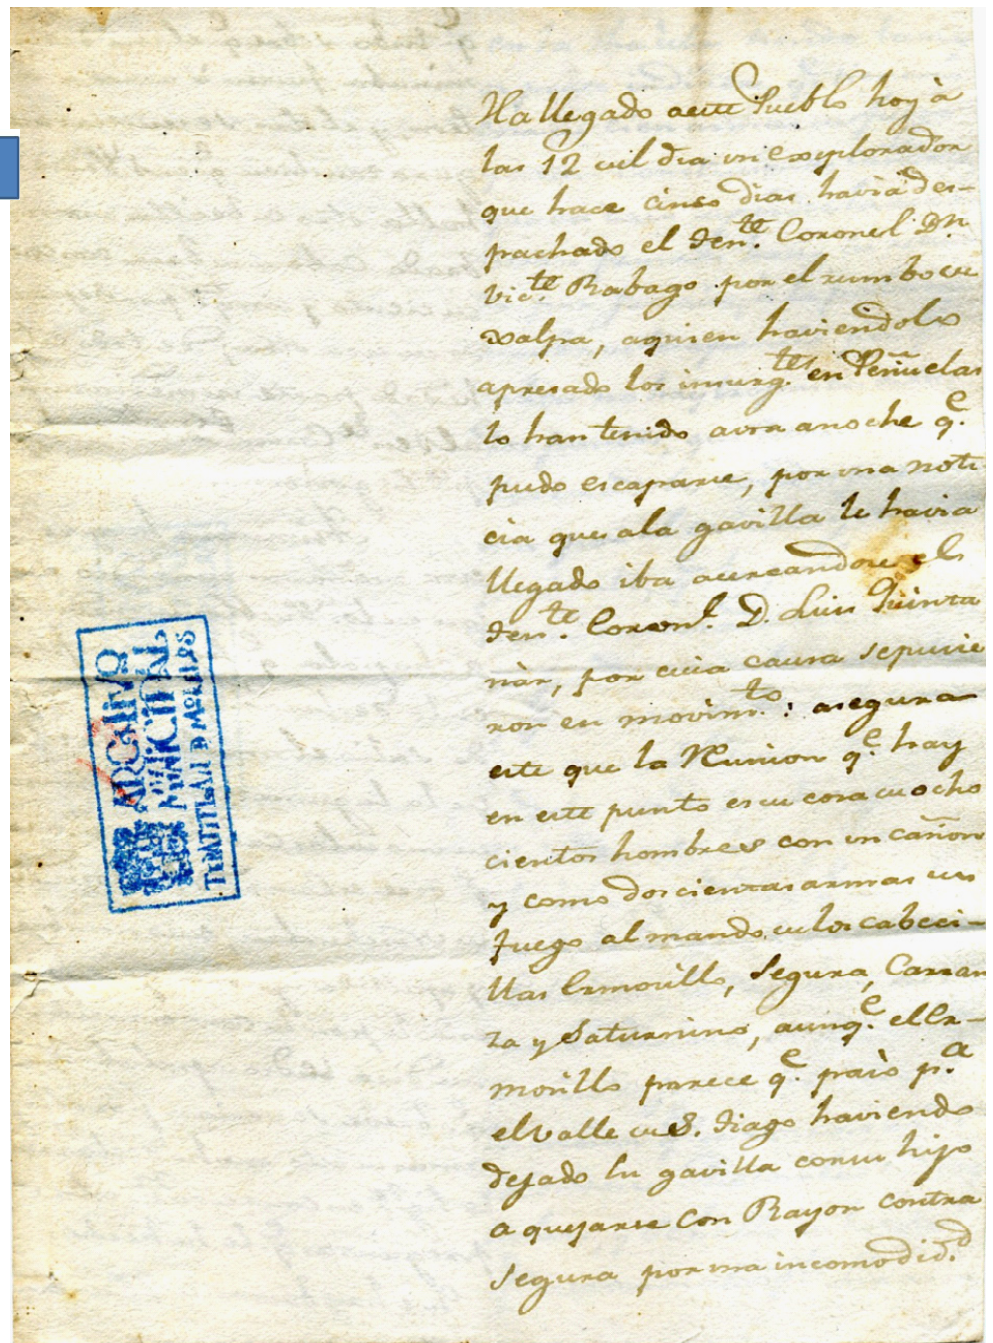 Ha llegado aeste Pueblo hoy à
las 12 del dia un explorador
que hace cinco dias havia des-
pachado el Ten.te Coronel Dn.
Vic.te Rabago por el rumbo de
Xalpa, aquien haviendolo
apresado los insurg.tes en Peñuelas
lo han tenido asta anoche q.e
pudo escaparse, por una noti
cia que ala gavilla le havia
llegado iba acercandose el
Ten.te Coron.l D. Luis Quinta
nàr, por cuia causa sepusie
ron en movim.to: asegura
este que la Reunion q.e hay
en este punto es de cosa de ocho
cientos hombres con un cañon
y como doscientas armas de
fuego al mando de los cabeci-
llas Ermosillo, Segura, Carran
za y Saturnino, aunq.e el Er-
mosillo parece q.e pasò p.a
el Valle de S. Diago haviendo
dejado su gavilla consu hijo
a quejarse con Rayon contra
Segura por una incomodid.d
ARCHIVO
MUNICIPAL
TEPATITLAN D MORELOS